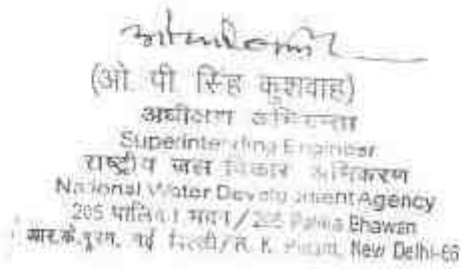 (ओ. पी. सिंह कुशवाह)
अधीक्षण अभियन्ता
Superintending Engineer
राष्ट्रीय जल विकास अभिकरण
National Water Development Agency
205 पालिका भवन / 205 Palika Bhawan
आर.के.पुरम, नई दिल्ली / R. K. Puram, New Delhi-66